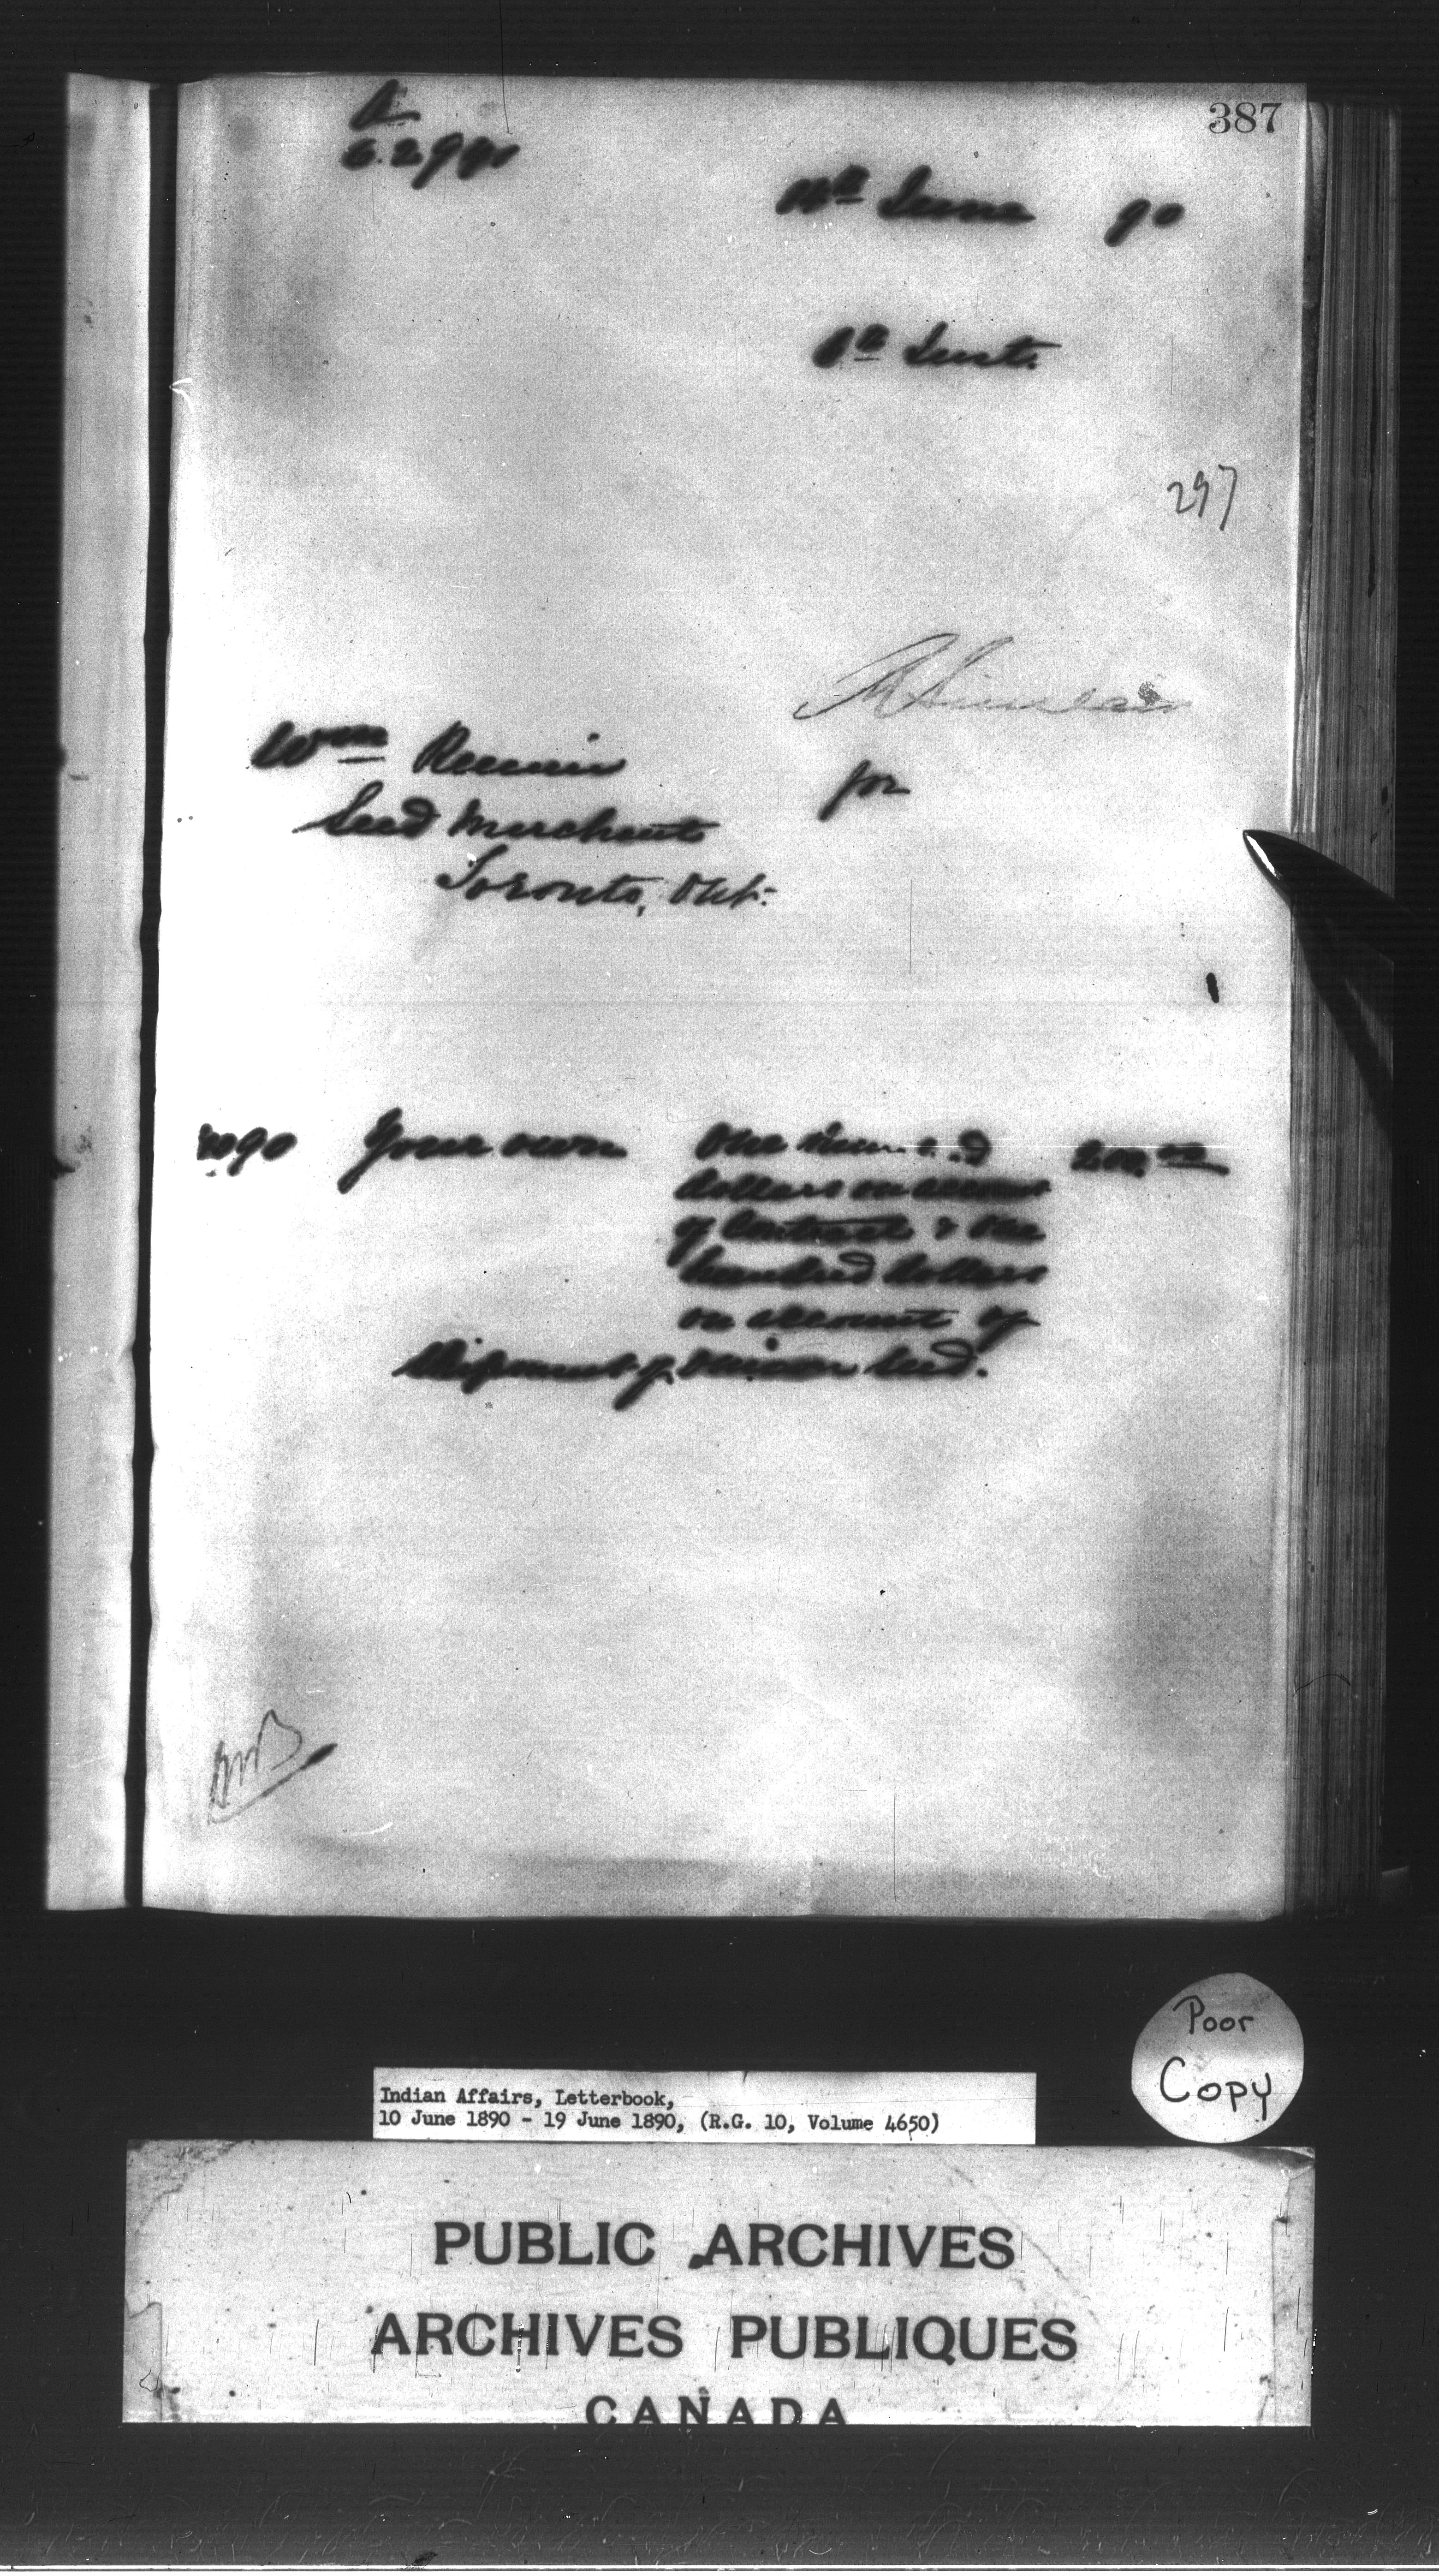 387
June 90
6th Inst.
297
Wm Rennie
for
Seed Merchant
Toronto, Ont.
Your own One hundred 200.00
dollars on account
of Contract & One
hundred dollars
on account of
Shipment of seed.
Poor
Copy
Indian Affairs, Letterbook,
10 June 1890 - 19 June 1890, (R.G. 10, Volume 4650)
PUBLIC ARCHIVES
ARCHIVES PUBLIQUES
CANADA